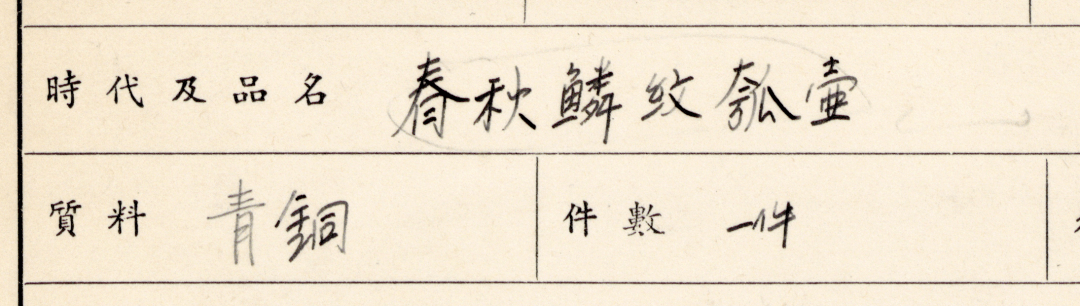 時代及品名 春秋鱗紋瓠壺
質料 青銅 件數 一件